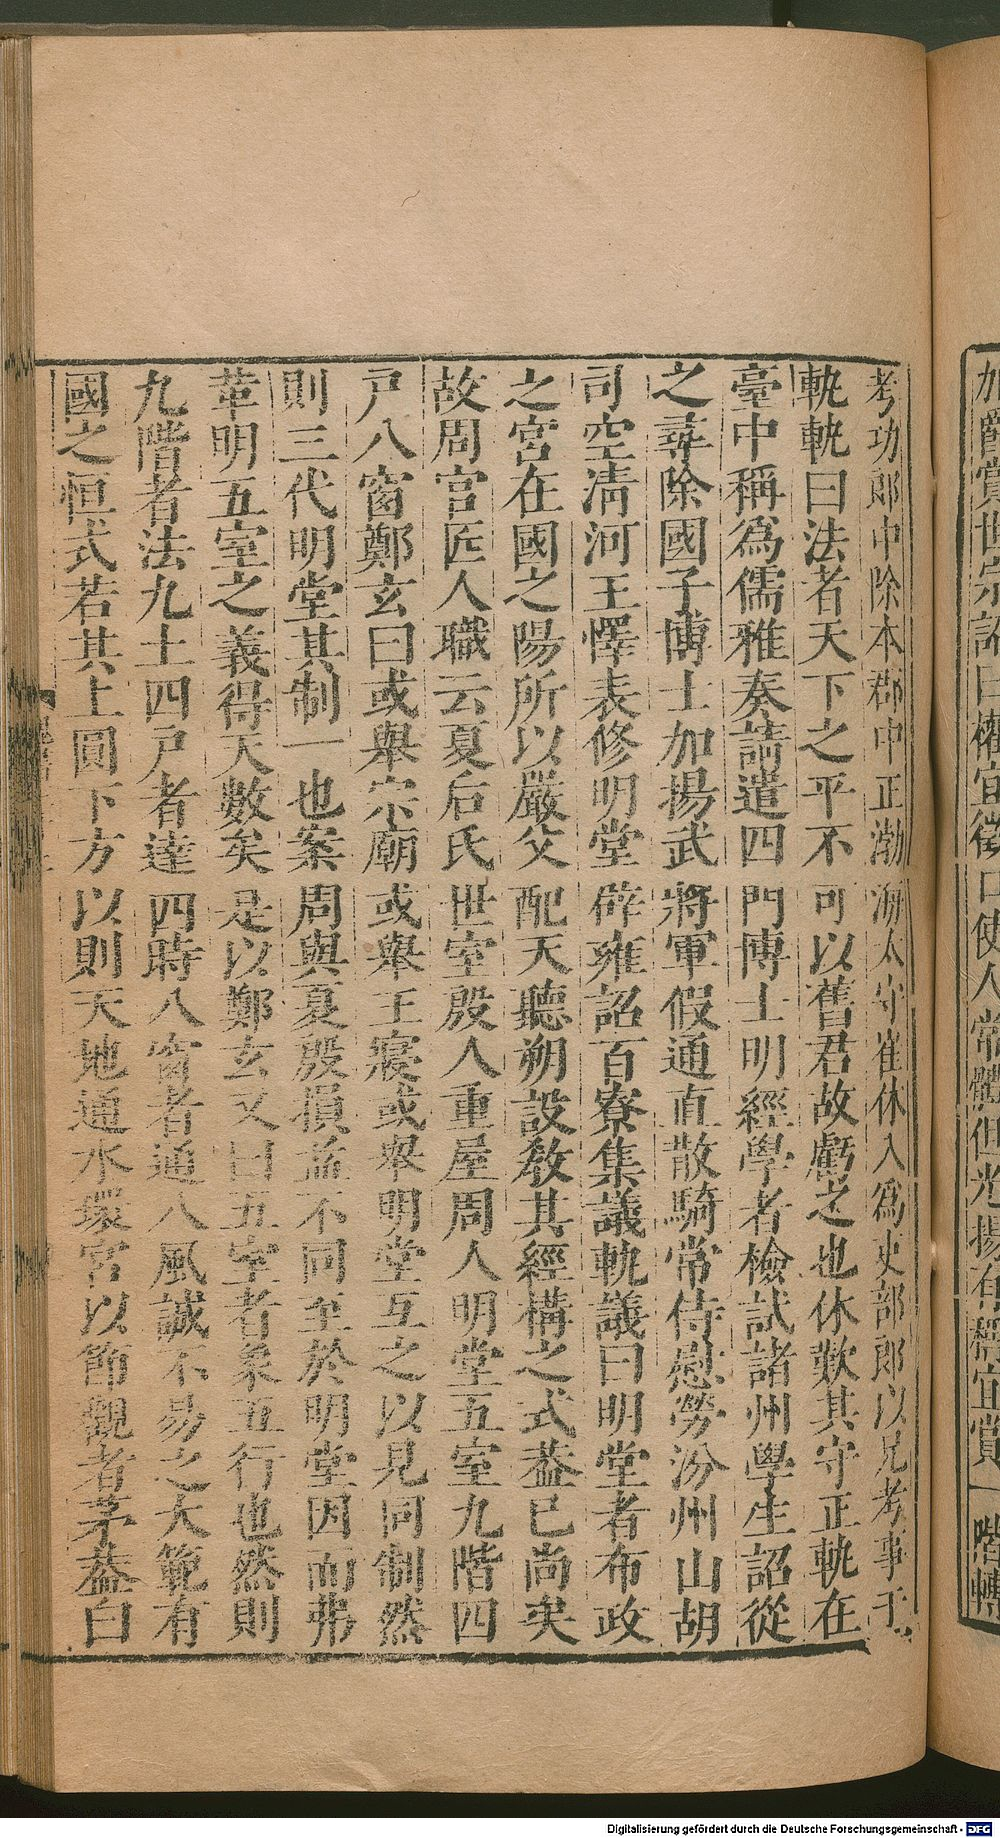 加爵賞世宗詔曰權宜徵口使人常體但光揚有稱宜賞一階轉
考功郎中除本郡中正渤海太守崔休入爲吏部郎以兄考事干
軌軌曰法者天下之平不可以舊君故虧之也休歎其守正軌在
臺中稱爲儒雅奏請遣四門博士明經學者檢試諸州學生詔從
之尋除國子博士加揚武將軍假通直散騎常侍慰勞汾州山胡
司空清河王懌表修明堂辟雍詔百寮集議軌議曰明堂者布政
之宮在國之陽所以嚴父配天聽朔設敎其經構之式葢已尚矣
故周官匠人職云夏后氏世室殷人重屋周人明堂五室九階四
戸八窗鄭玄曰或舉宗廟或舉王寢或舉明堂互之以見同制然
則三代明堂其制一也案周與夏殷損益不同至於明堂因而弗
革明五室之義得天數矣是以鄭玄又曰五室者象五行也然則
九階者法九土四戸者達四時八窗者通八風誠不易之大範有
國之恒式若其上圓下方以則天地通水環宮以節觀者茅葢白
Digitalisierung gefördert durch die Deutsche Forschungsgemeinschaft - DFG